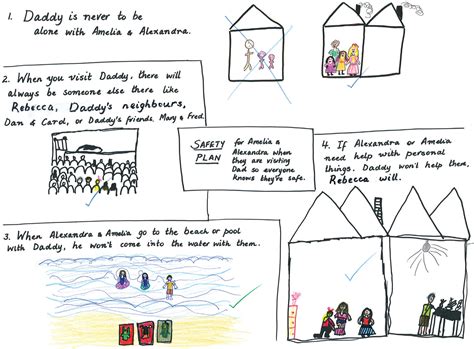 1. Daddy is never to be
alone with Amelia & Alexandra.
2. When you visit Daddy, there will
always be someone else there like
Rebecca, Daddy's neighbours,
Dan & Carol, or Daddy's friends, Mary & Fred.
SAFETY
PLAN
for Amelia &
Alexandra when
they are visiting
Dad so everyone
knows they're safe.
3. When Alexandra & Amelia go to the beach or pool
with Daddy, he won't come into the water with them.
4. If Alexandra or Amelia
need help with personal
things, Daddy won't help them,
Rebecca will.